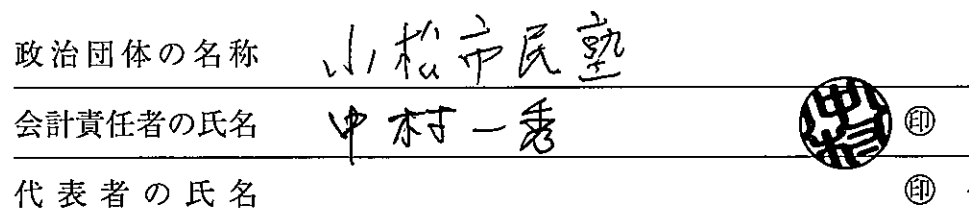 政治団体の名称 小松市民塾
会計責任者の氏名 中村一秀 中村 ㊞
代表者の氏名 ㊞